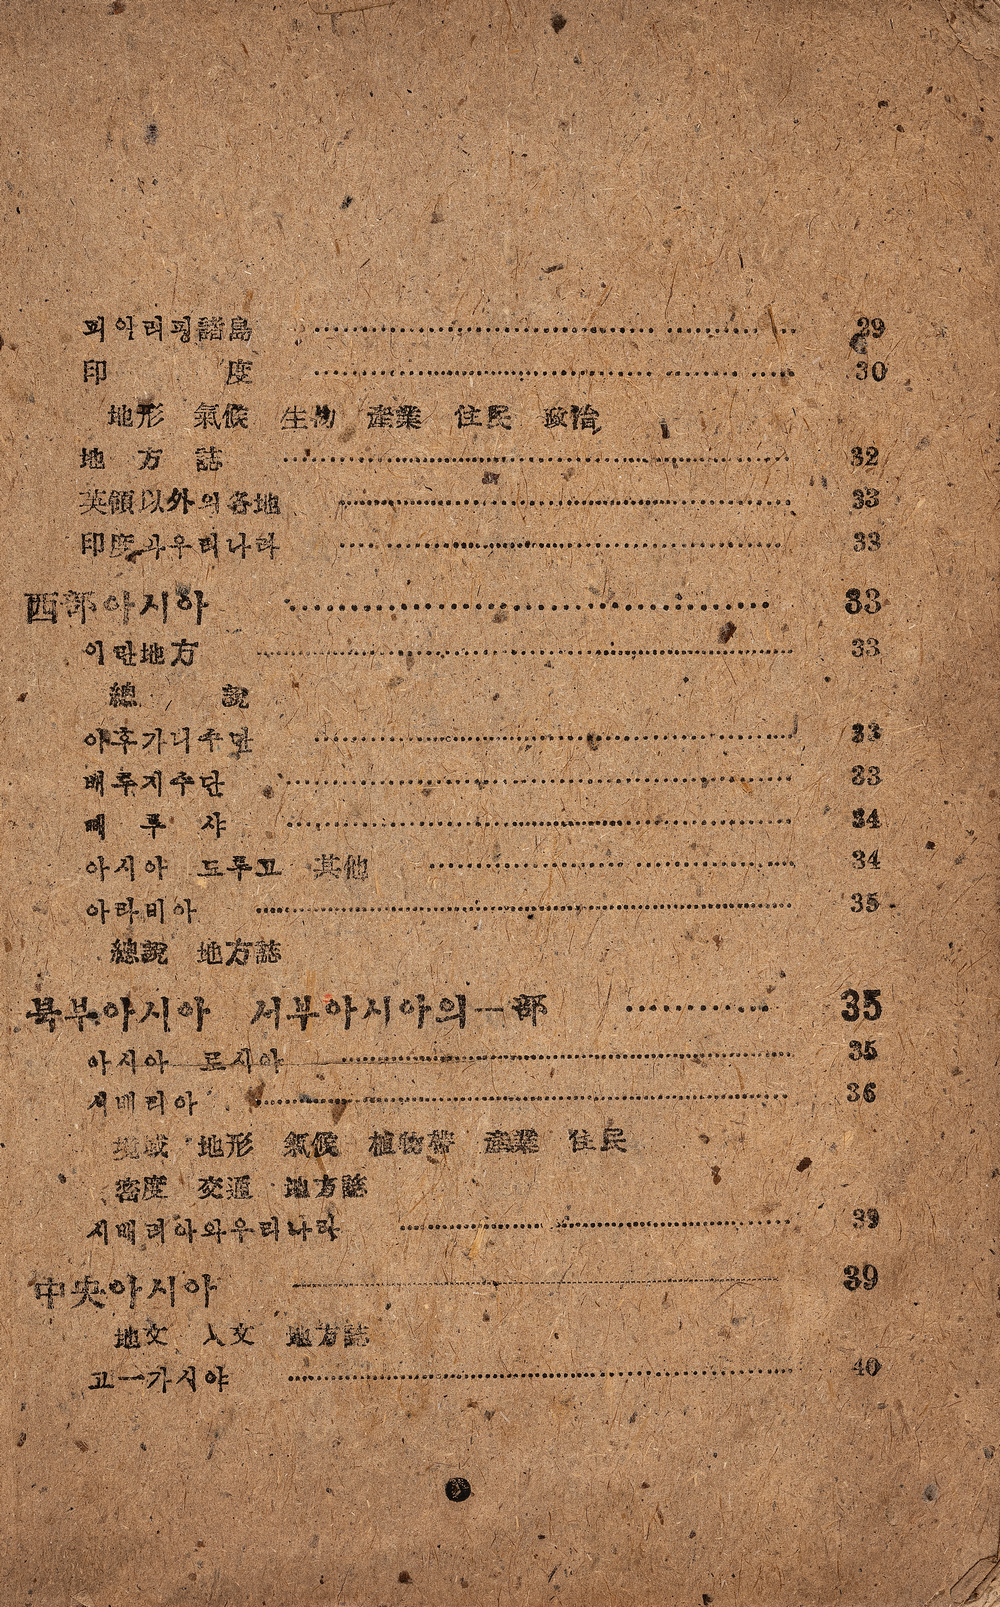 피아리핑諸島 29
印度 30
地形 氣候 生物 產業 住民 政治
地方誌 32
英領以外의各地 33
印度과우리나라 33
西部아시아 33
이란地方 33
總說
아후가니수단 33
배루지수단 33
페루샤 34
아시아 도루고 其他 34
아라비아 35
總說 地方誌
북부아시아 서부아시아의一部 35
아시아 로시아 35
시베리아 36
境域 地形 氣候 植物帶 產業 住民
密度 交通 地方誌
시베리아와우리나라 39
中央아시아 39
地文 人文 地方誌
고一가시야 40